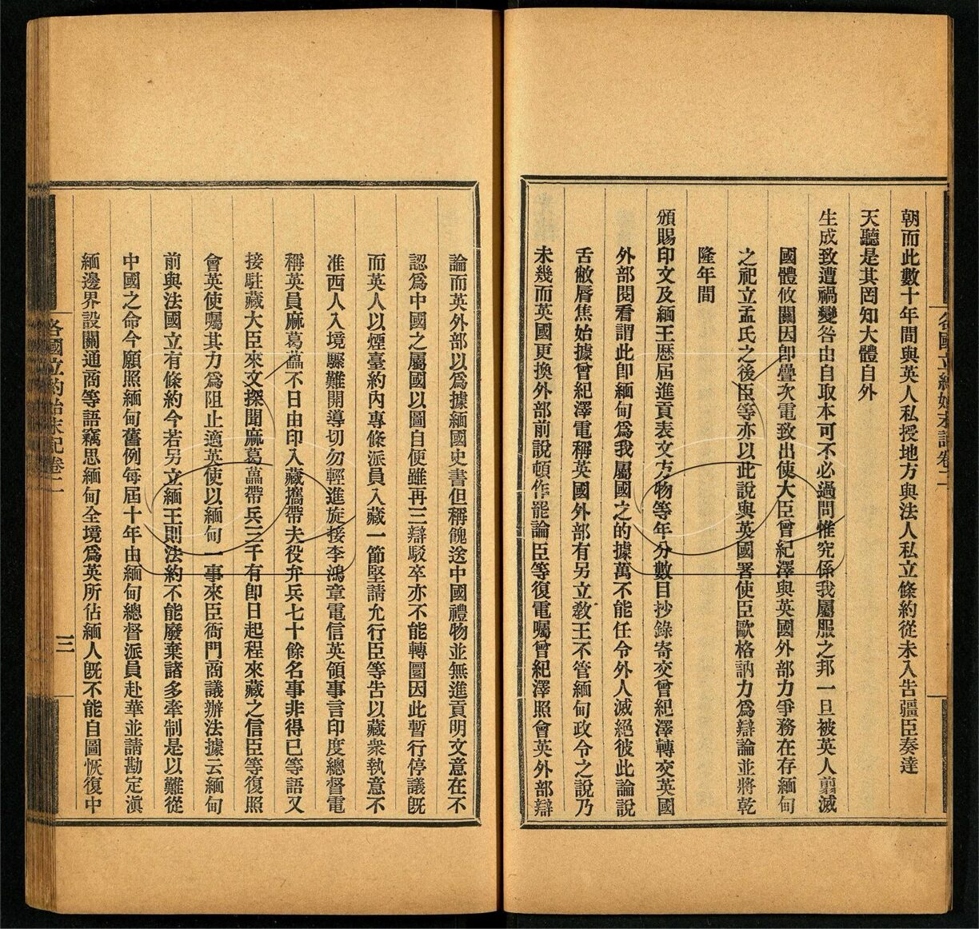 朝而此數十年間與英人私授地方與法人私立條約從未入告疆臣奏達
天聽是其罔知大體自外
生成致遭禍變咎由自取本可不必過問惟究係我屬服之邦一旦被英人翦滅
國體攸關因卽疊次電致出使大臣曾紀澤與英國外部力爭務在存緬甸
之祀立孟氏之後臣等亦以此說與英國署使臣歐格訥力爲辯論並將乾
隆年間
頒賜印文及緬王歷屆進貢表文方物等年分數目抄錄寄交曾紀澤轉交英國
外部閱看謂此卽緬甸爲我屬國之的據萬不能任令外人滅絕彼此論說
舌敝脣焦始據曾紀澤電稱英國外部有另立敎王不管緬甸政令之說乃
未幾而英國更換外部前說頓作罷論臣等復電囑曾紀澤照會英外部辯
各國立約始末記卷二
論而英外部以爲據緬國史書但稱餽送中國禮物並無進貢明文意在不
認爲中國之屬國以圖自便雖再三辯駁卒亦不能轉圜因此暫行停議旣
而英人以煙臺約內專條派員入藏一節堅請允行臣等告以藏衆執意不
准西人入境驟難開導切勿輕進旋接李鴻章電信英領事言印度總督電
稱英員麻葛藟不日由印入藏攜帶夫役弁兵七十餘名事非得已等語又
接駐藏大臣來文探聞麻葛藟帶兵三千有卽日起程來藏之信臣等復照
會英使囑其力爲阻止適英使以緬甸一事來臣衙門商議辦法據云緬甸
前與法國立有條約今若另立緬王則法約不能廢棄諸多牽制是以難從
中國之命今願照緬甸舊例每屆十年由緬甸總督派員赴華並請勘定滇
緬邊界設關通商等語竊思緬甸全境爲英所佔緬人旣不能自圖恢復中
各國立約始末記卷二
三